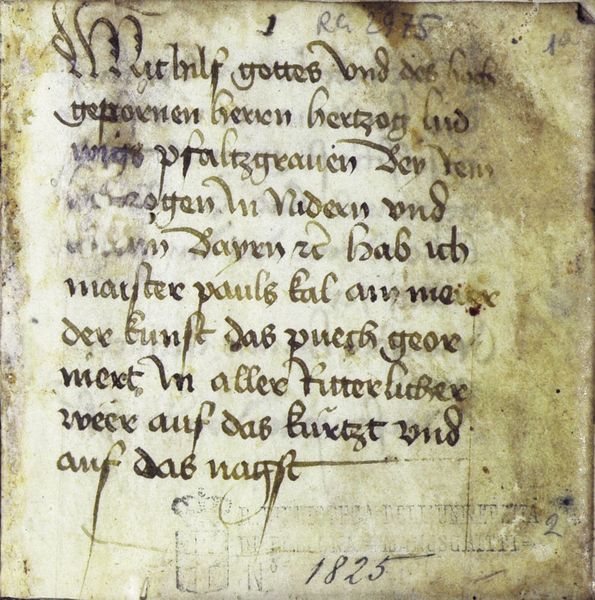 1
RG 2975
1a
Mit hilf gottes Vnd des hoch
gepornen herrn hertzog lud
wigs pfaltzgrauen Bey Rein
hertzogen In Nidern vnd
Bayrn ꝛc hab ich
maister pauls kal ain meister
der kunst das puech geor
niert In aller Ritterlicher
weer auf das kurtzt vnd
auf das nagst
2
No 1825